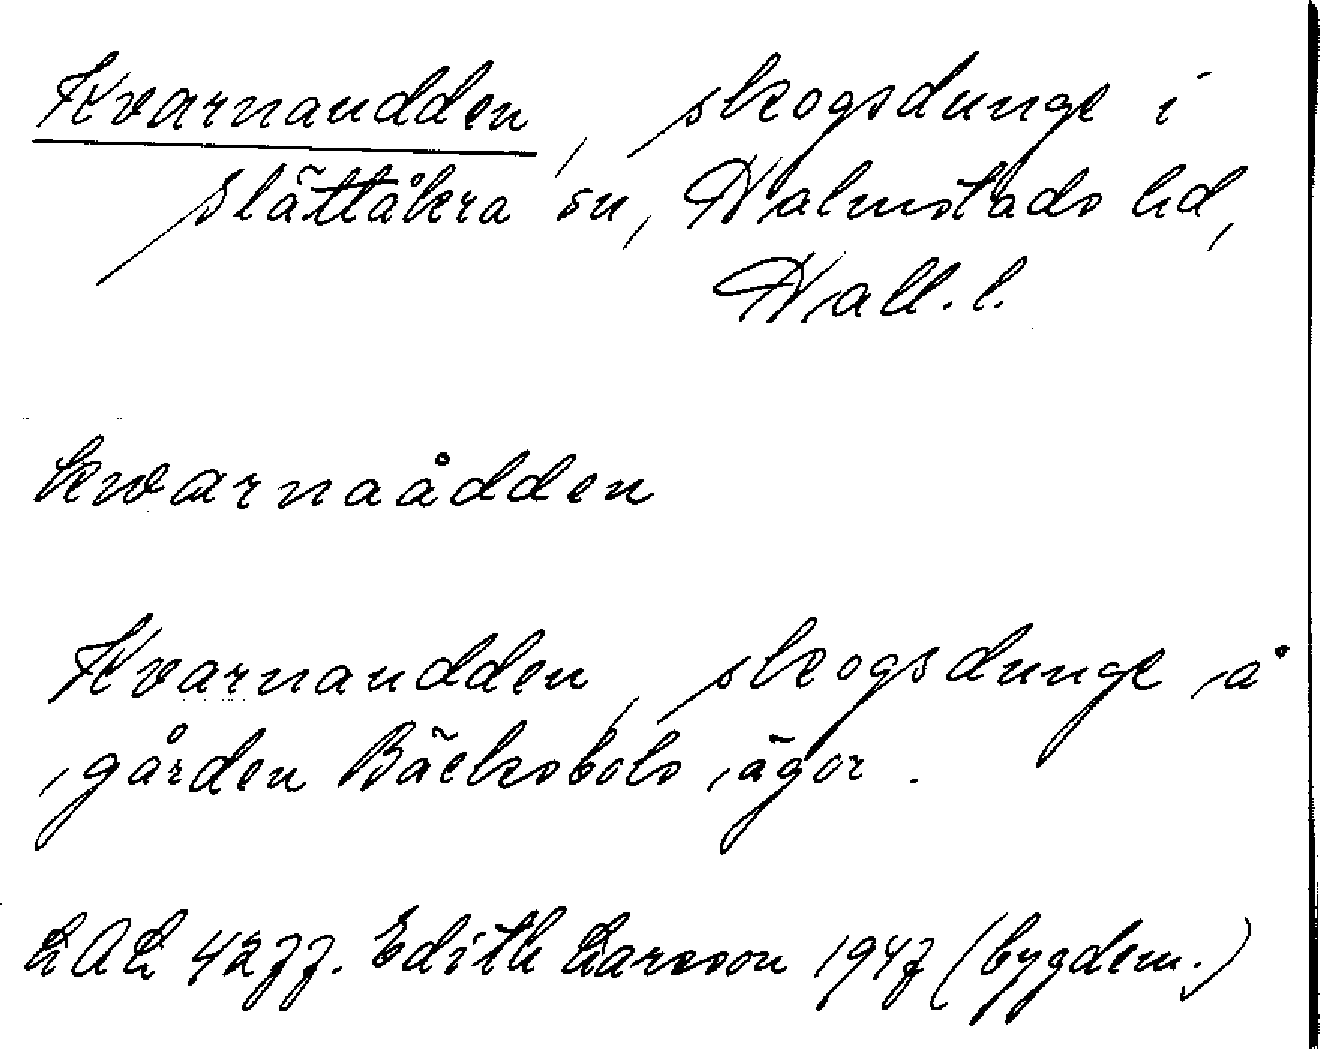 Kvarnaudden, skogsdunge i
Slättåkra sn, Halmstads hd,
Hall. l.
kwarnaådden
Kvarnaudden, skogsdunge å
gården Bäcksbols ägor.
LAL 4277. Edith Larsson 1947 (bygdem.)